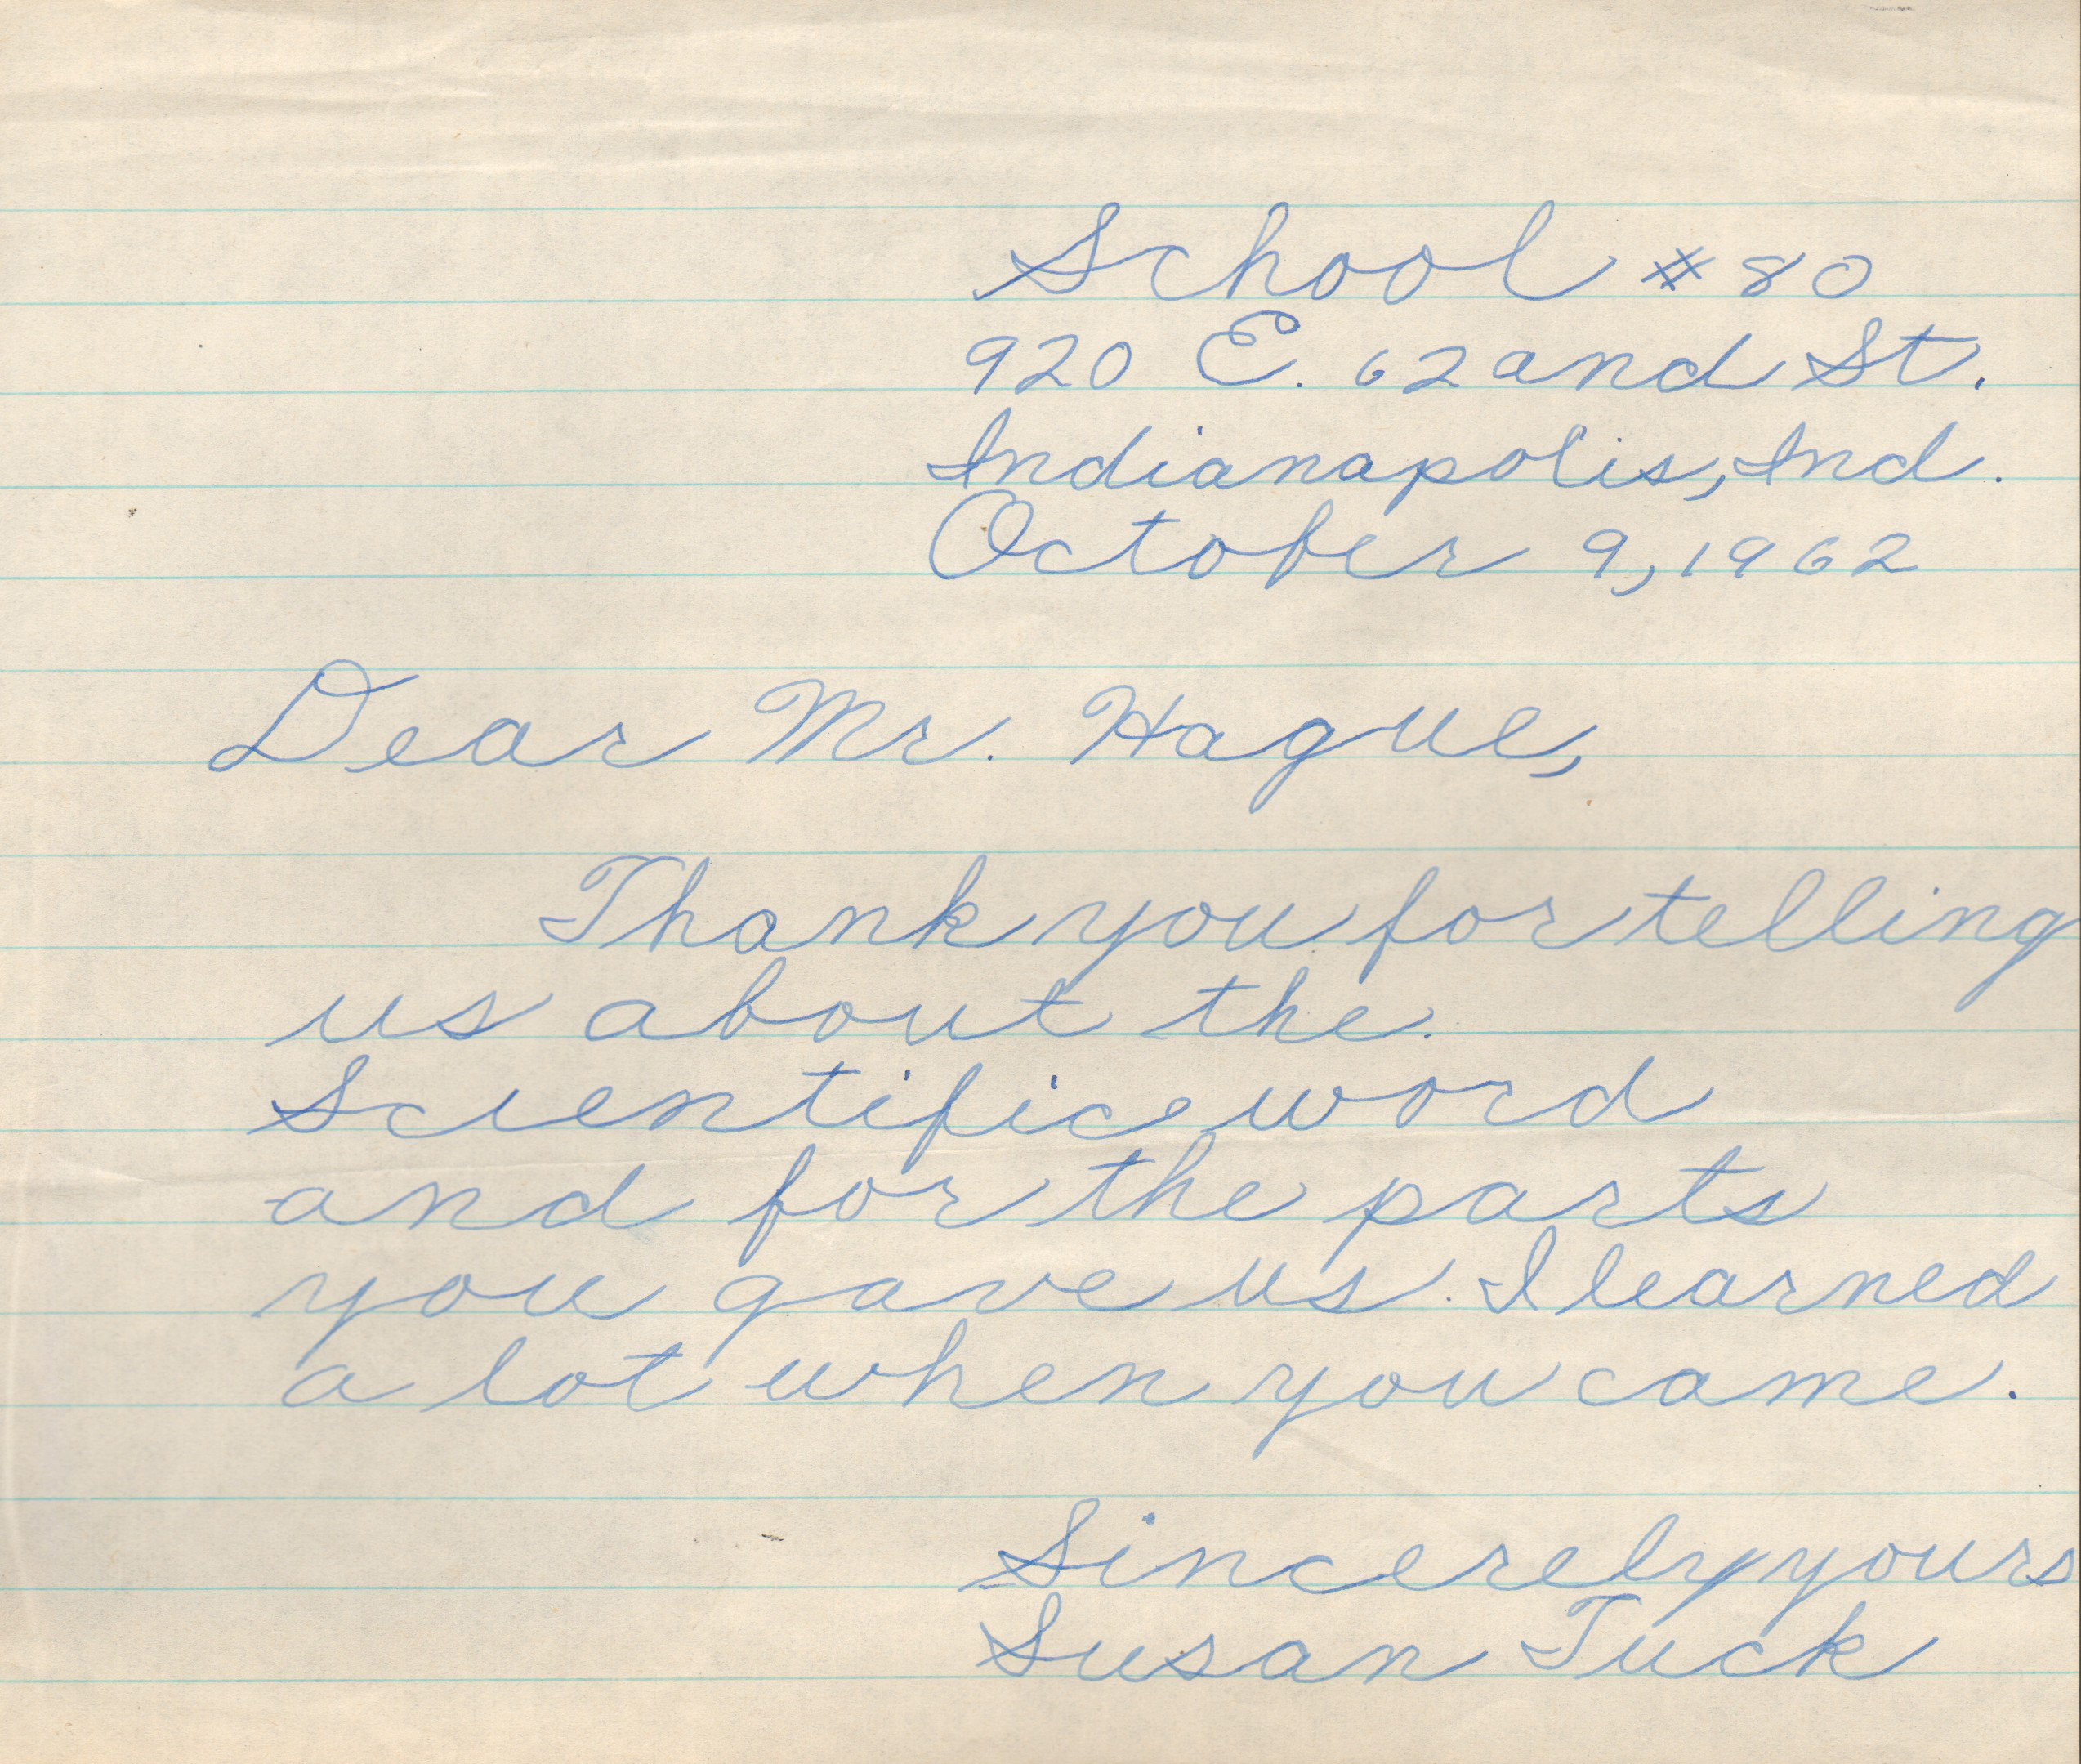 School #80
920 E. 62and St.
Indianapolis, Ind.
October 9, 1962
Dear Mr. Hague,
Thank you for telling
us about the
Scientifice word
and for the parts
you gave us. I learned
a lot when you came.
Sincerely yours
Susan Tuck